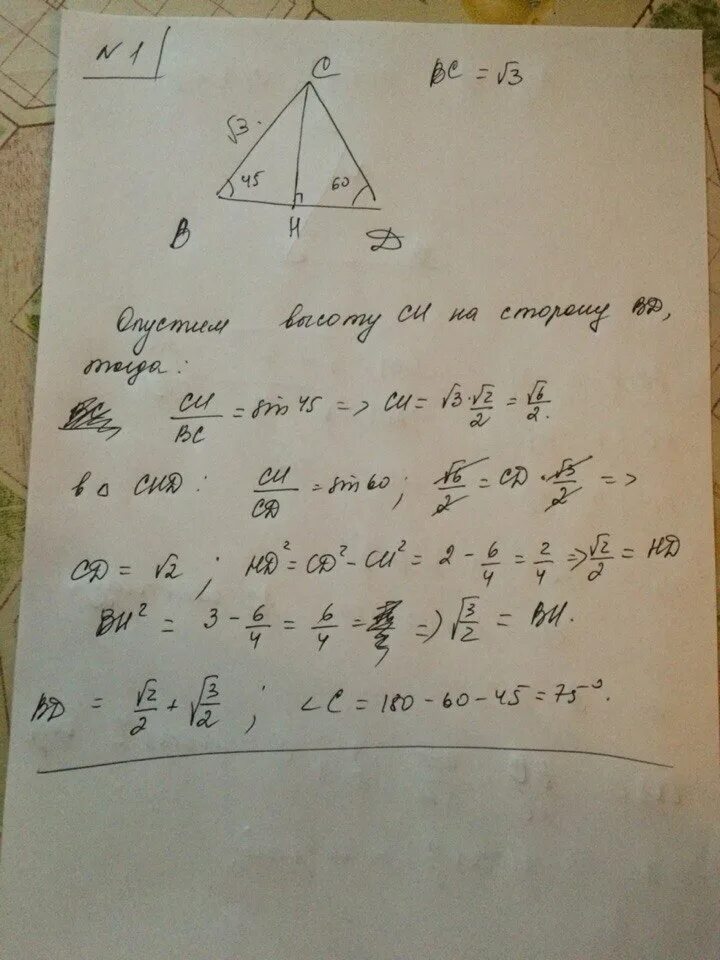 N 1
BC = √3
C
√3
45
60
B
H
D
Опустим высоту CH на сторону BD,
тогда:
BC CH/BC = sin 45 => CH = √3·√2/2 = √6/2.
в △ CHD: CH/CD = sin 60; √6/2 = CD · √3/2 =>
CD = √2; HD² = CD² - CH² = 2 - 6/4 = 2/4 => √2/2 = HD
BH² = 3 - 6/4 = 6/4 = => √(3/2) = BH.
BD = √2/2 + √(3/2); ∠C = 180 - 60 - 45 = 75°.